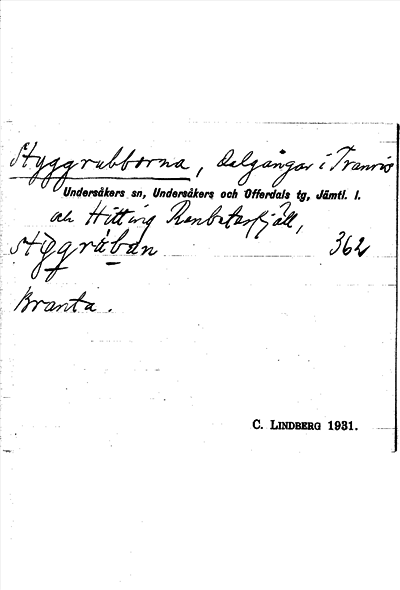 Styggrubborna, dalgångar i Tranris
Undersåkers sn, Undersåkers och Offerdals tg, Jämtl. l.
och Hitting Renbetesfjäll,
styggråban 362
Branta.
C. LINDBERG 1931.